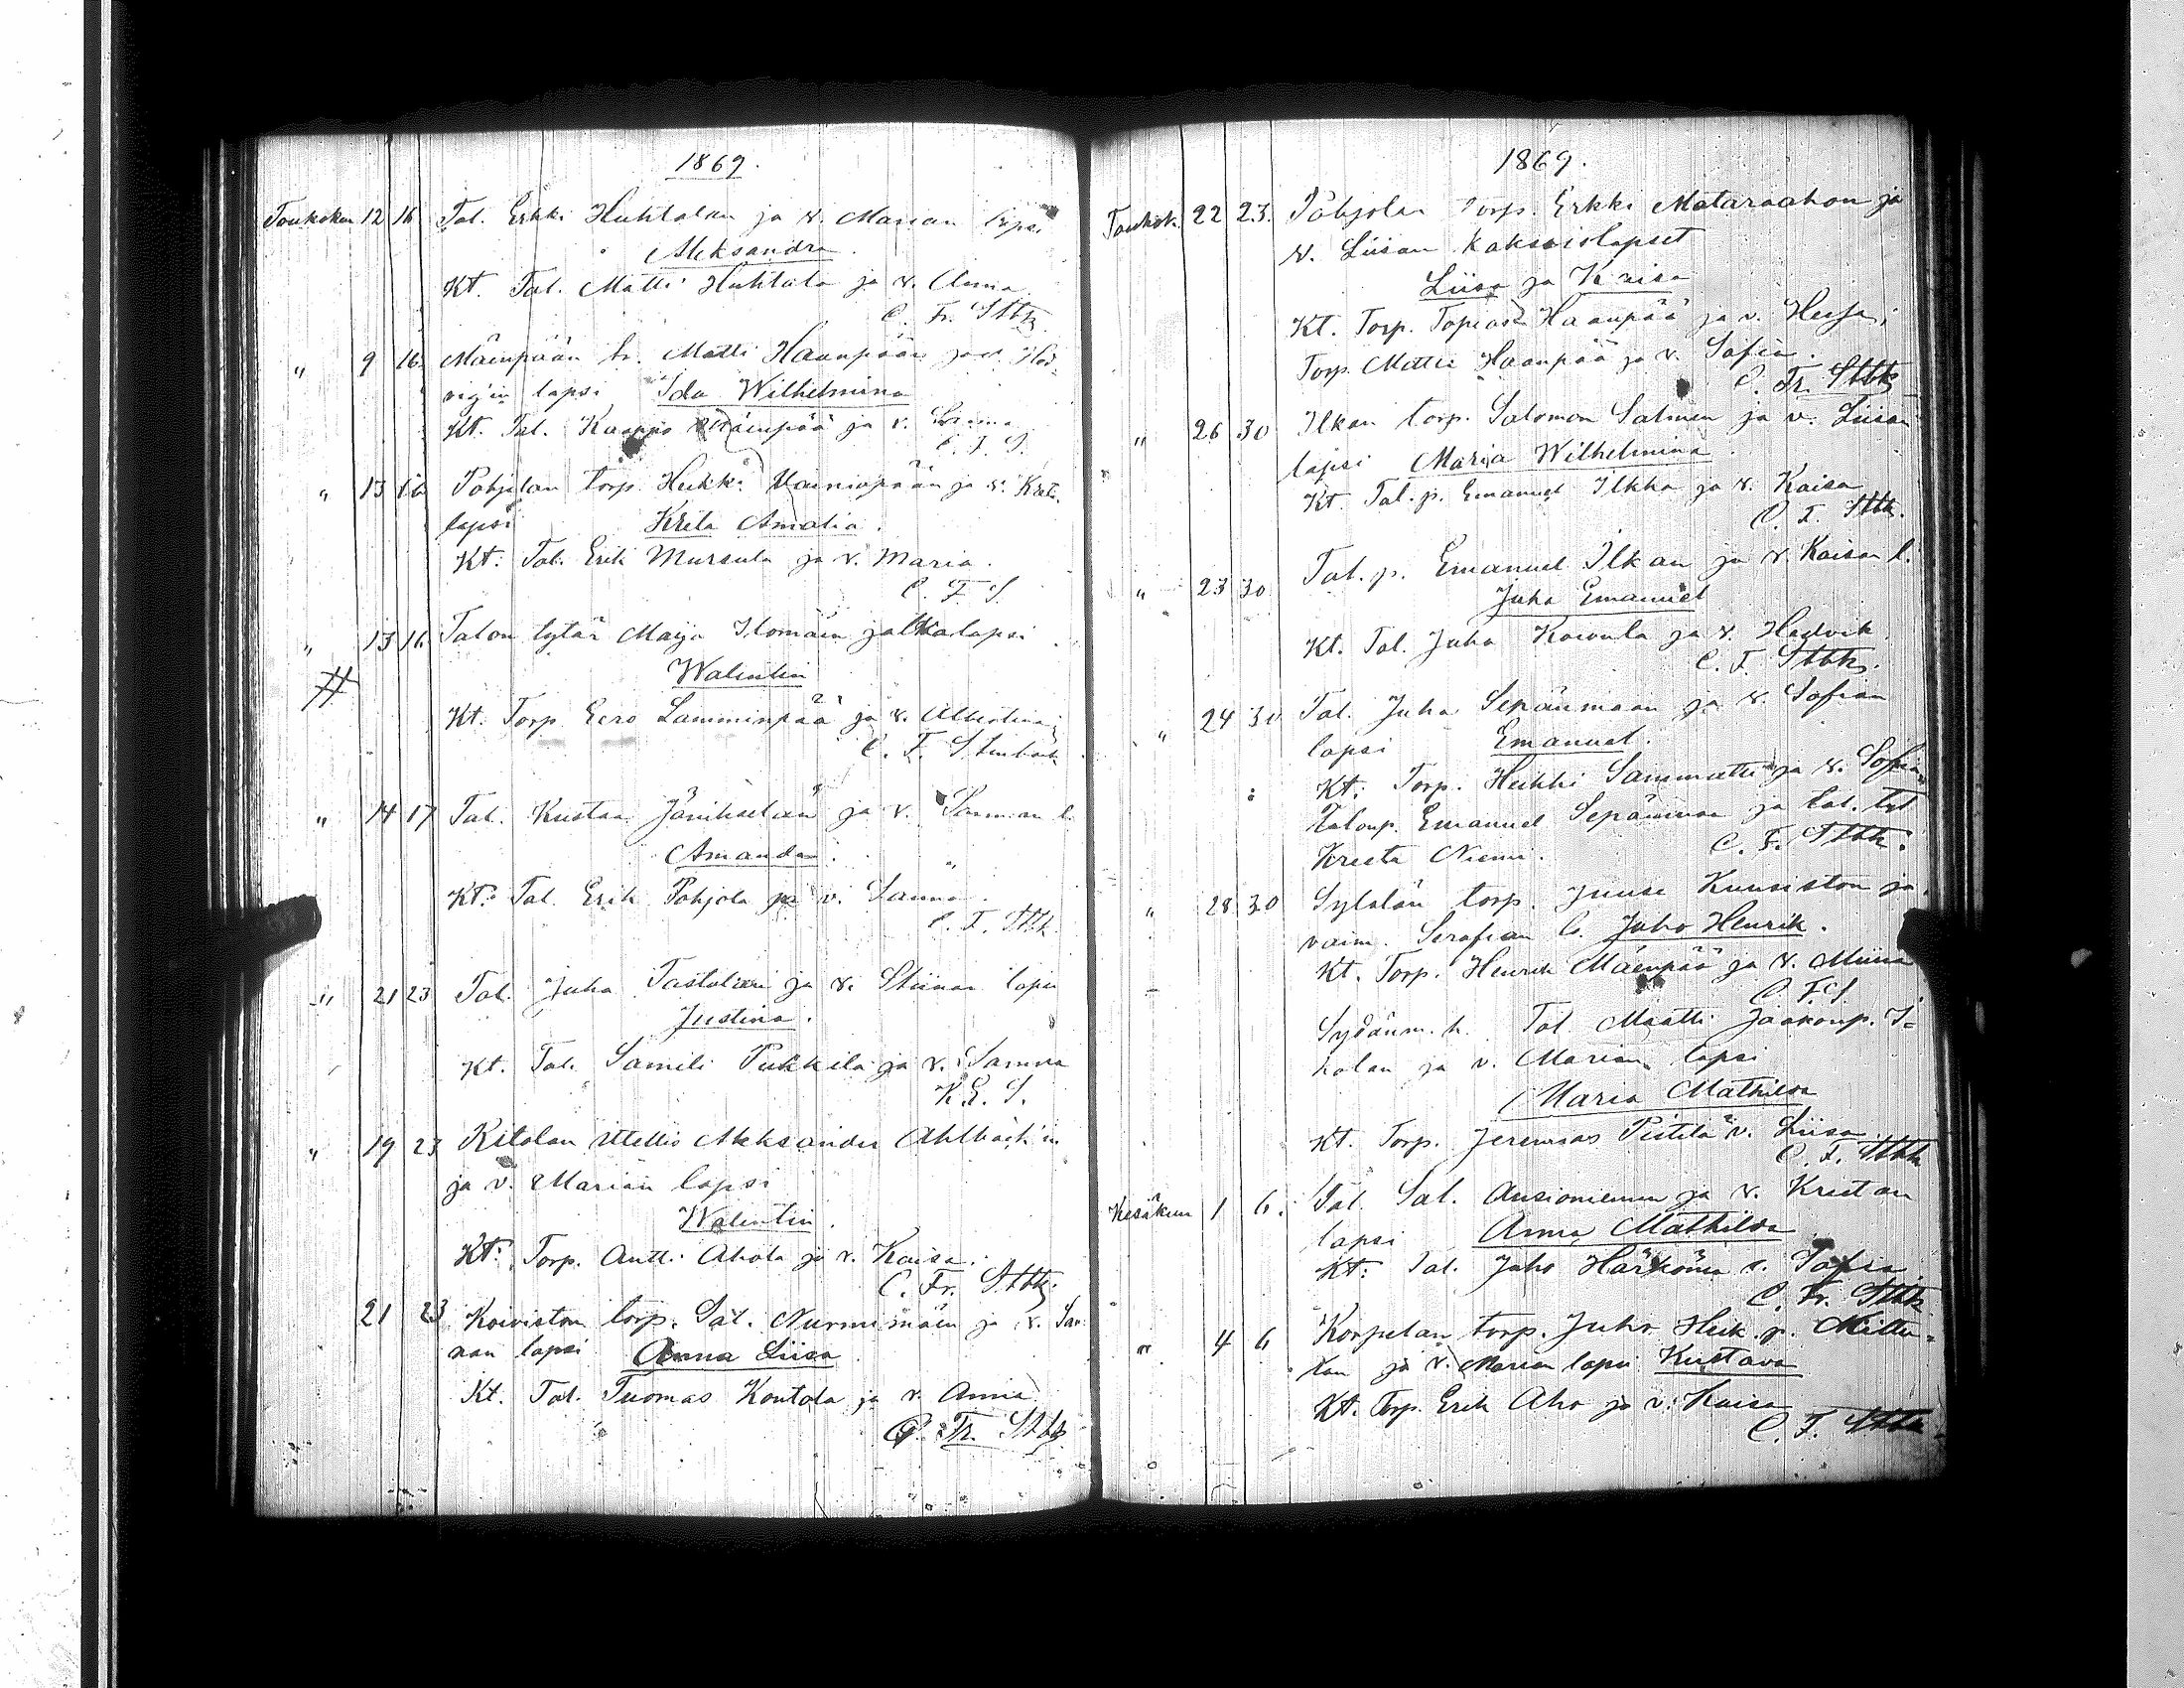 1869.
Toukokuu 12 16 Tal. Erkki Huhtalan ja v. Marian lapsi
Aleksandra.
Kt. Tal. Matti Huhtala ja v. Anna
C. Fr. Stbk.
" 9 16. Mäenpään tr. Matti Haanpään ja v. Hed-
vig'in lapsi Ida Wilhelmina
Kt. Tal. Kaappo Mäenpää ja v. Sanna
C. F. S.
" 13 16 Pohjolan torp. Heikki Vainiopään ja v.
lapsi Kreta Amalia.
Kt. Tal. Erik Mursula ja v. Maria.
C. F. S.
" 13 16. Talon tytär Maija Ilomäen lapsi
Walentin
Kt. Torp. Eero Lamminpää ja v. Albertina;
C. F. Stenbäck
" 14 17 Tal. Kustaa Jänikselän ja v. Sannan l.
Amanda.
Kt. Tal. Erik Pohjola ja v. Sanna.
C. F. Stbk.
" 21 23 Tal. Juha Tastulan ja v. Stiinan lapsi
Justina.
Kt. Tal. Sameli Pukkila ja v. Sanna
K. E. S.
" 19 23 Ritolan Aleksander Ahlbäck'in
ja v. Marian lapsi
Walentin.
Kt. Torp. Antti Ahola ja v. Kaisa.
C. Fr. Stbk.
21 23 Koiviston torp. Sal. Nurmimäen ja v. San-
nan lapsi Anna Liisa
Kt. Tal. Tuomas Kontola ja v. Anna
C. Fr. Stbk.
1869.
Toukok. 22 23. Pohjolan torp. Erkki Mataraahon ja
v. Liisan kaksoislapset
Liisa ja Kaisa
Kt. Torp. Topias Haanpää ja v.
Torp. Mattii Haanpää ja v. Sofia.
C. Fr. Stbk
" 26 30 Ilkan torp. Salomon Salmen ja v. Liisan
lapsi Maria Wilhelmina.
Kt. Tal. p. Emanuel Ilkka ja v. Kaisa
C. F. Stbk.
" 23 30 Tal. p. Emanuel Ilkan ja v. Kaisan l.
Juha Emanuel
Kt. Tal. Juha Koivula ja v. Hedvik
C. F. Stbk.
" 24 30 Tal. Juha Sepänmaan ja v. Sofian
lapsi Emanuel.
Kt. Torp. Heikki Sammatti ja v. Sofia,
Talonp. Emanuel Sepänmaa ja tal. tyt
Kreeta Niemi. C. F. Stbk.
" 28 30 torp. Juuse Kuusiston ja
vaim. Serafian l. Juho Henrik.
Kt. Torp. Henrik Mäenpää ja v. Miina
C. F. S.
Sydänm. k. Tal. Maatti Jaakonp. I-
kolan ja v. Marian lapsi
Maria Mathilda
Kt. Torp. Jeremias Pistilä v. Liisa
C. F. Stbk
Kesäkuu 1 6. Tal. Sal. Ansioniemen ja v. Kreetan
lapsi Anna Mathilda
Kt. Tal. Juho Härkönen v. Sofia
C. Fr. Stbk
" 4 6 Korpelan torp. Juho Heik. p.
ja v. Marian lapsi Kustava
Kt. Torp. Erik Aho ja v. Kaisa
C. F. Stbk.